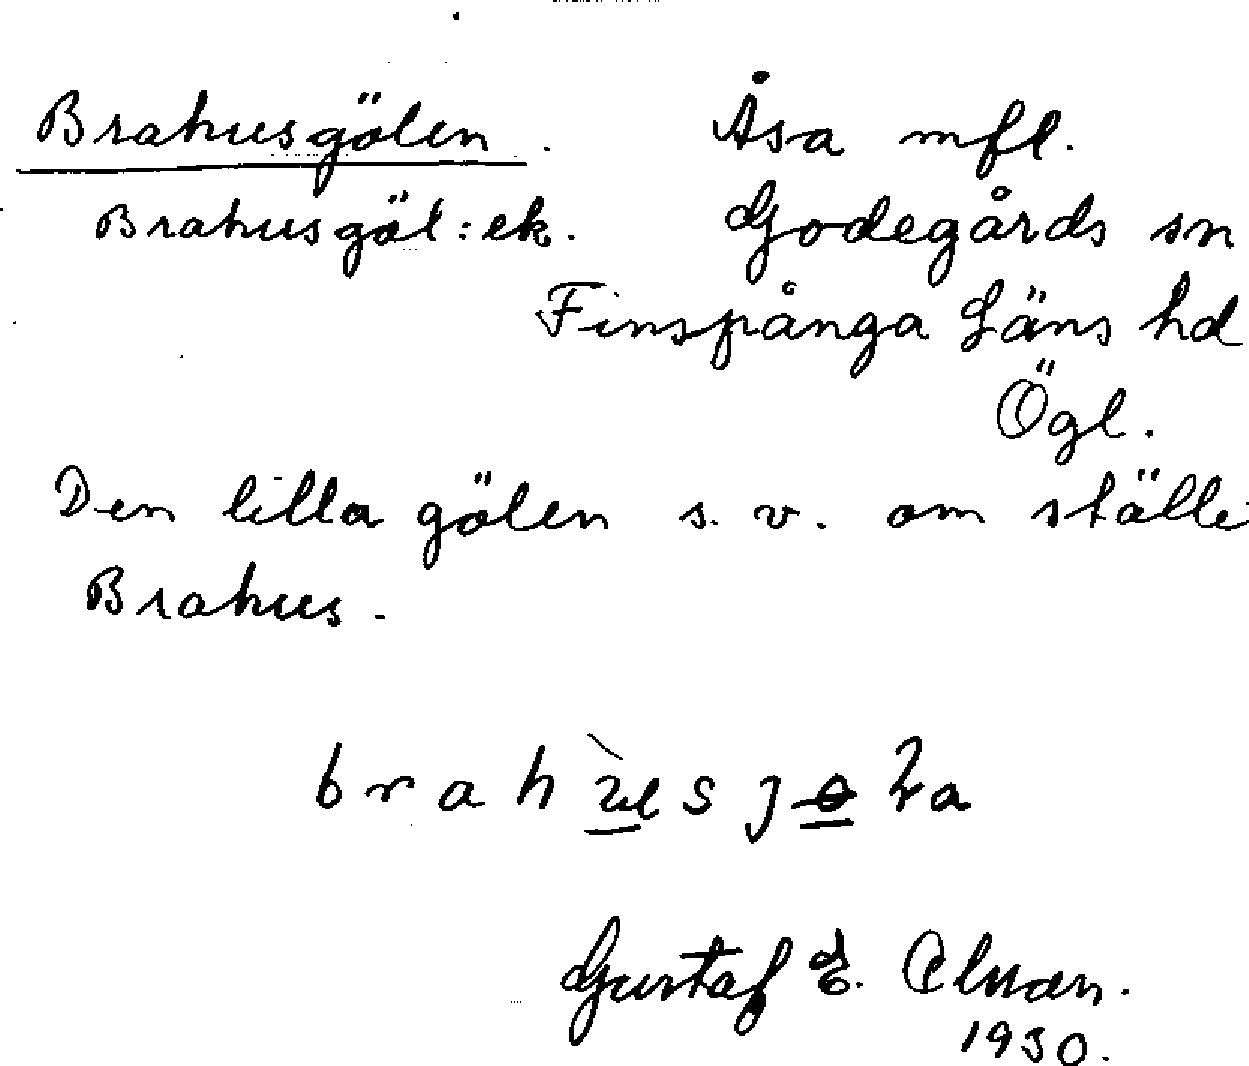 Brahusgölen. Åsa mfl.
Brahusgöl: ek. Godegårds sn
Finspånga Läns hd
Ögl.
Den lilla gölen s. v. om ställe
Brahus.
Gustaf E.
1930.